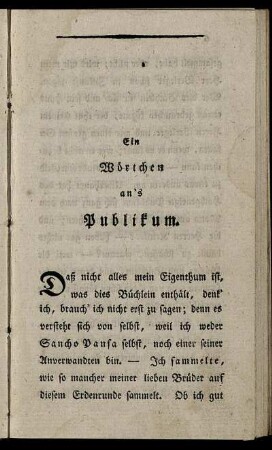 Ein
Wörtchen
an's
Publikum.
Daß nicht alles mein Eigenthum ist,
was dies Büchlein enthält, denk'
ich, brauch' ich nicht erst zu sagen; denn es
versteht sich von selbst, weil ich weder
Sancho Pansa selbst, noch einer seiner
Anverwandten bin. — Ich sammelte,
wie so mancher meiner lieben Brüder auf
diesem Erdenrunde sammelt. Ob ich gut